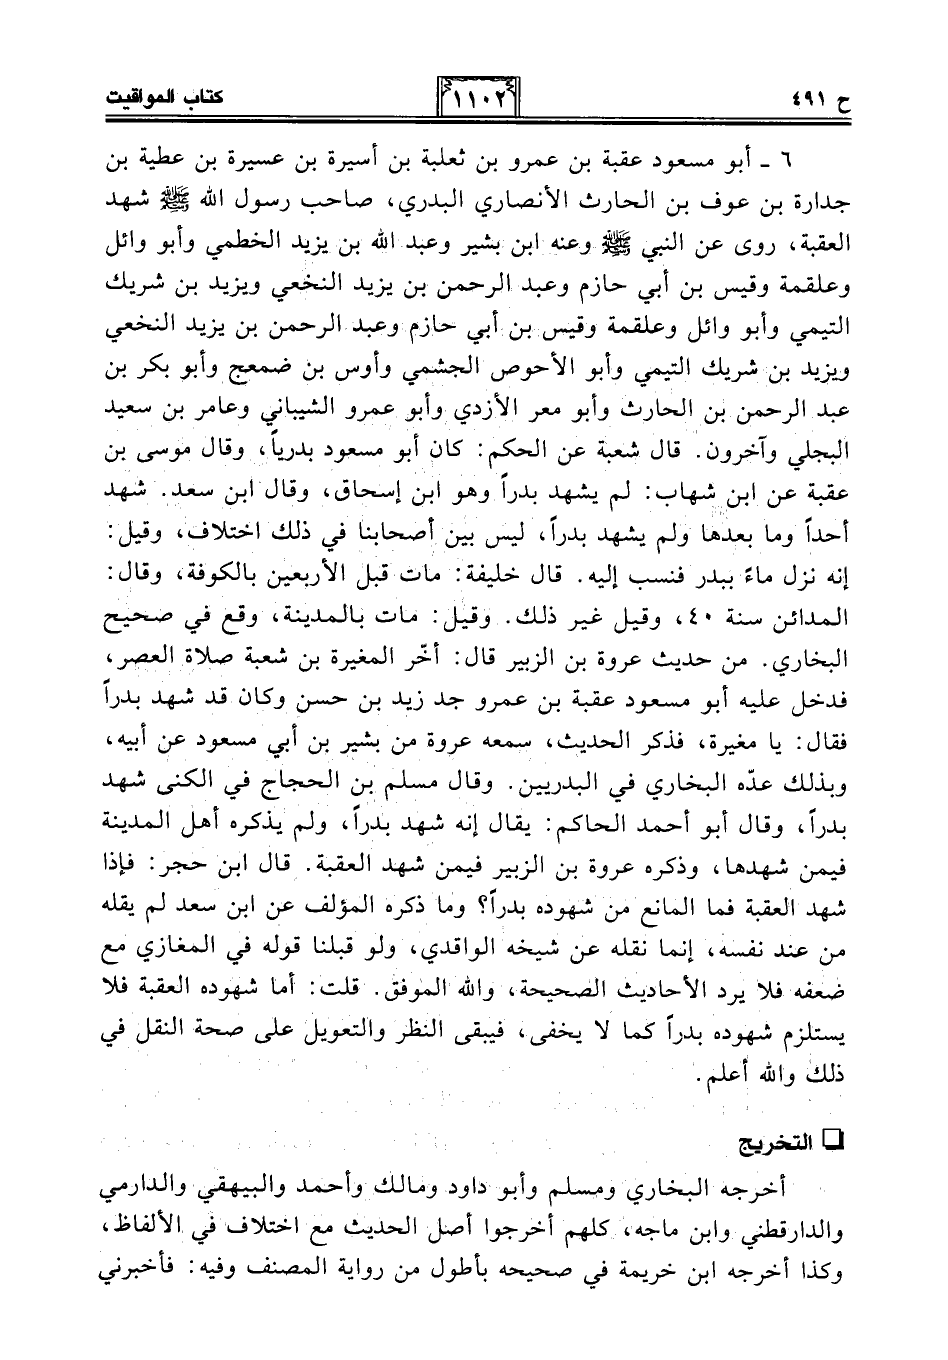 ح ٤٩١ ١١٠٢ كتاب المواقيت
٦ ـ أبو مسعود عقبة بن عمرو بن ثعلبة بن أسيرة بن عسيرة بن عطية بن
جدارة بن عوف بن الحارث الأنصاري البدري، صاحب رسول الله ﷺ شهد
العقبة، روى عن النبي ﷺ وعنه ابن بشير وعبد الله بن يزيد الخطمي وأبو وائل
وعلقمة وقيس بن أبي حازم وعبد الرحمن بن يزيد النخعي ويزيد بن شريك
التيمي وأبو وائل وعلقمة وقيس بن أبي حازم وعبد الرحمن بن يزيد النخعي
ويزيد بن شريك التيمي وأبو الأحوص الجشمي وأوس بن ضمعج وأبو بكر بن
عبد الرحمن بن الحارث وأبو معر الأزدي وأبو عمرو الشيباني وعامر بن سعيد
البجلي وآخرون. قال شعبة عن الحكم: كان أبو مسعود بدرياً، وقال موسى بن
عقبة عن ابن شهاب: لم يشهد بدراً وهو ابن إسحاق، وقال ابن سعد. شهد
أحداً وما بعدها ولم يشهد بدراً، ليس بين أصحابنا في ذلك اختلاف، وقيل:
إنه نزل ماءً ببدر فنسب إليه. قال خليفة: مات قبل الأربعين بالكوفة، وقال:
المدائن سنة ٤٠، وقيل غير ذلك. وقيل: مات بالمدينة، وقع في صحيح
البخاري. من حديث عروة بن الزبير قال: أخّر المغيرة بن شعبة صلاة العصر،
فدخل عليه أبو مسعود عقبة بن عمرو جد زيد بن حسن وكان قد شهد بدراً
فقال: يا مغيرة، فذكر الحديث، سمعه عروة من بشير بن أبي مسعود عن أبيه،
وبذلك عدّه البخاري في البدريين. وقال مسلم بن الحجاج في الكنى شهد
بدراً، وقال أبو أحمد الحاكم: يقال إنه شهد بدراً، ولم يذكره أهل المدينة
فيمن شهدها، وذكره عروة بن الزبير فيمن شهد العقبة. قال ابن حجر: فإذا
شهد العقبة فما المانع من شهوده بدراً؟ وما ذكره المؤلف عن ابن سعد لم يقله
من عند نفسه، إنما نقله عن شيخه الواقدي، ولو قبلنا قوله في المغازي مع
ضعفه فلا يرد الأحاديث الصحيحة، والله الموفق. قلت: أما شهوده العقبة فلا
يستلزم شهوده بدراً كما لا يخفى، فيبقى النظر والتعويل على صحة النقل في
ذلك والله أعلم.
❏ التخريج
أخرجه البخاري ومسلم وأبو داود ومالك وأحمد والبيهقي والدارمي
والدارقطني وابن ماجه، كلهم أخرجوا أصل الحديث مع اختلاف في الألفاظ،
وكذا أخرجه ابن خريمة في صحيحه بأطول من رواية المصنف وفيه: فأخبرني